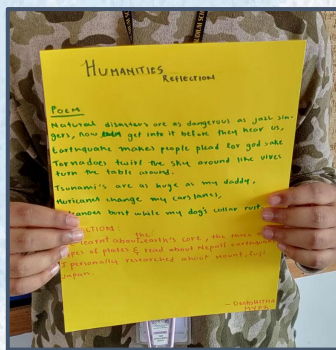 HUMANITIES
REFLECTION
POEM
Natural disasters are as dangerous as jazz sin-
gers, now get into it before they hear us,
Earthquake makes people plead for god sake
Tornadoes twist the sky around like vibes
turn the table around.
Tsunami's are as huge as my daddy,
Hurricanes change my cars lanes,
canoes burst while my dog's collar rust
CTION:
learnt about the earth's core, the three
types of plates & read about Nepal earthquake
I personally researched about Mount Fuji
Japan.
MYP2